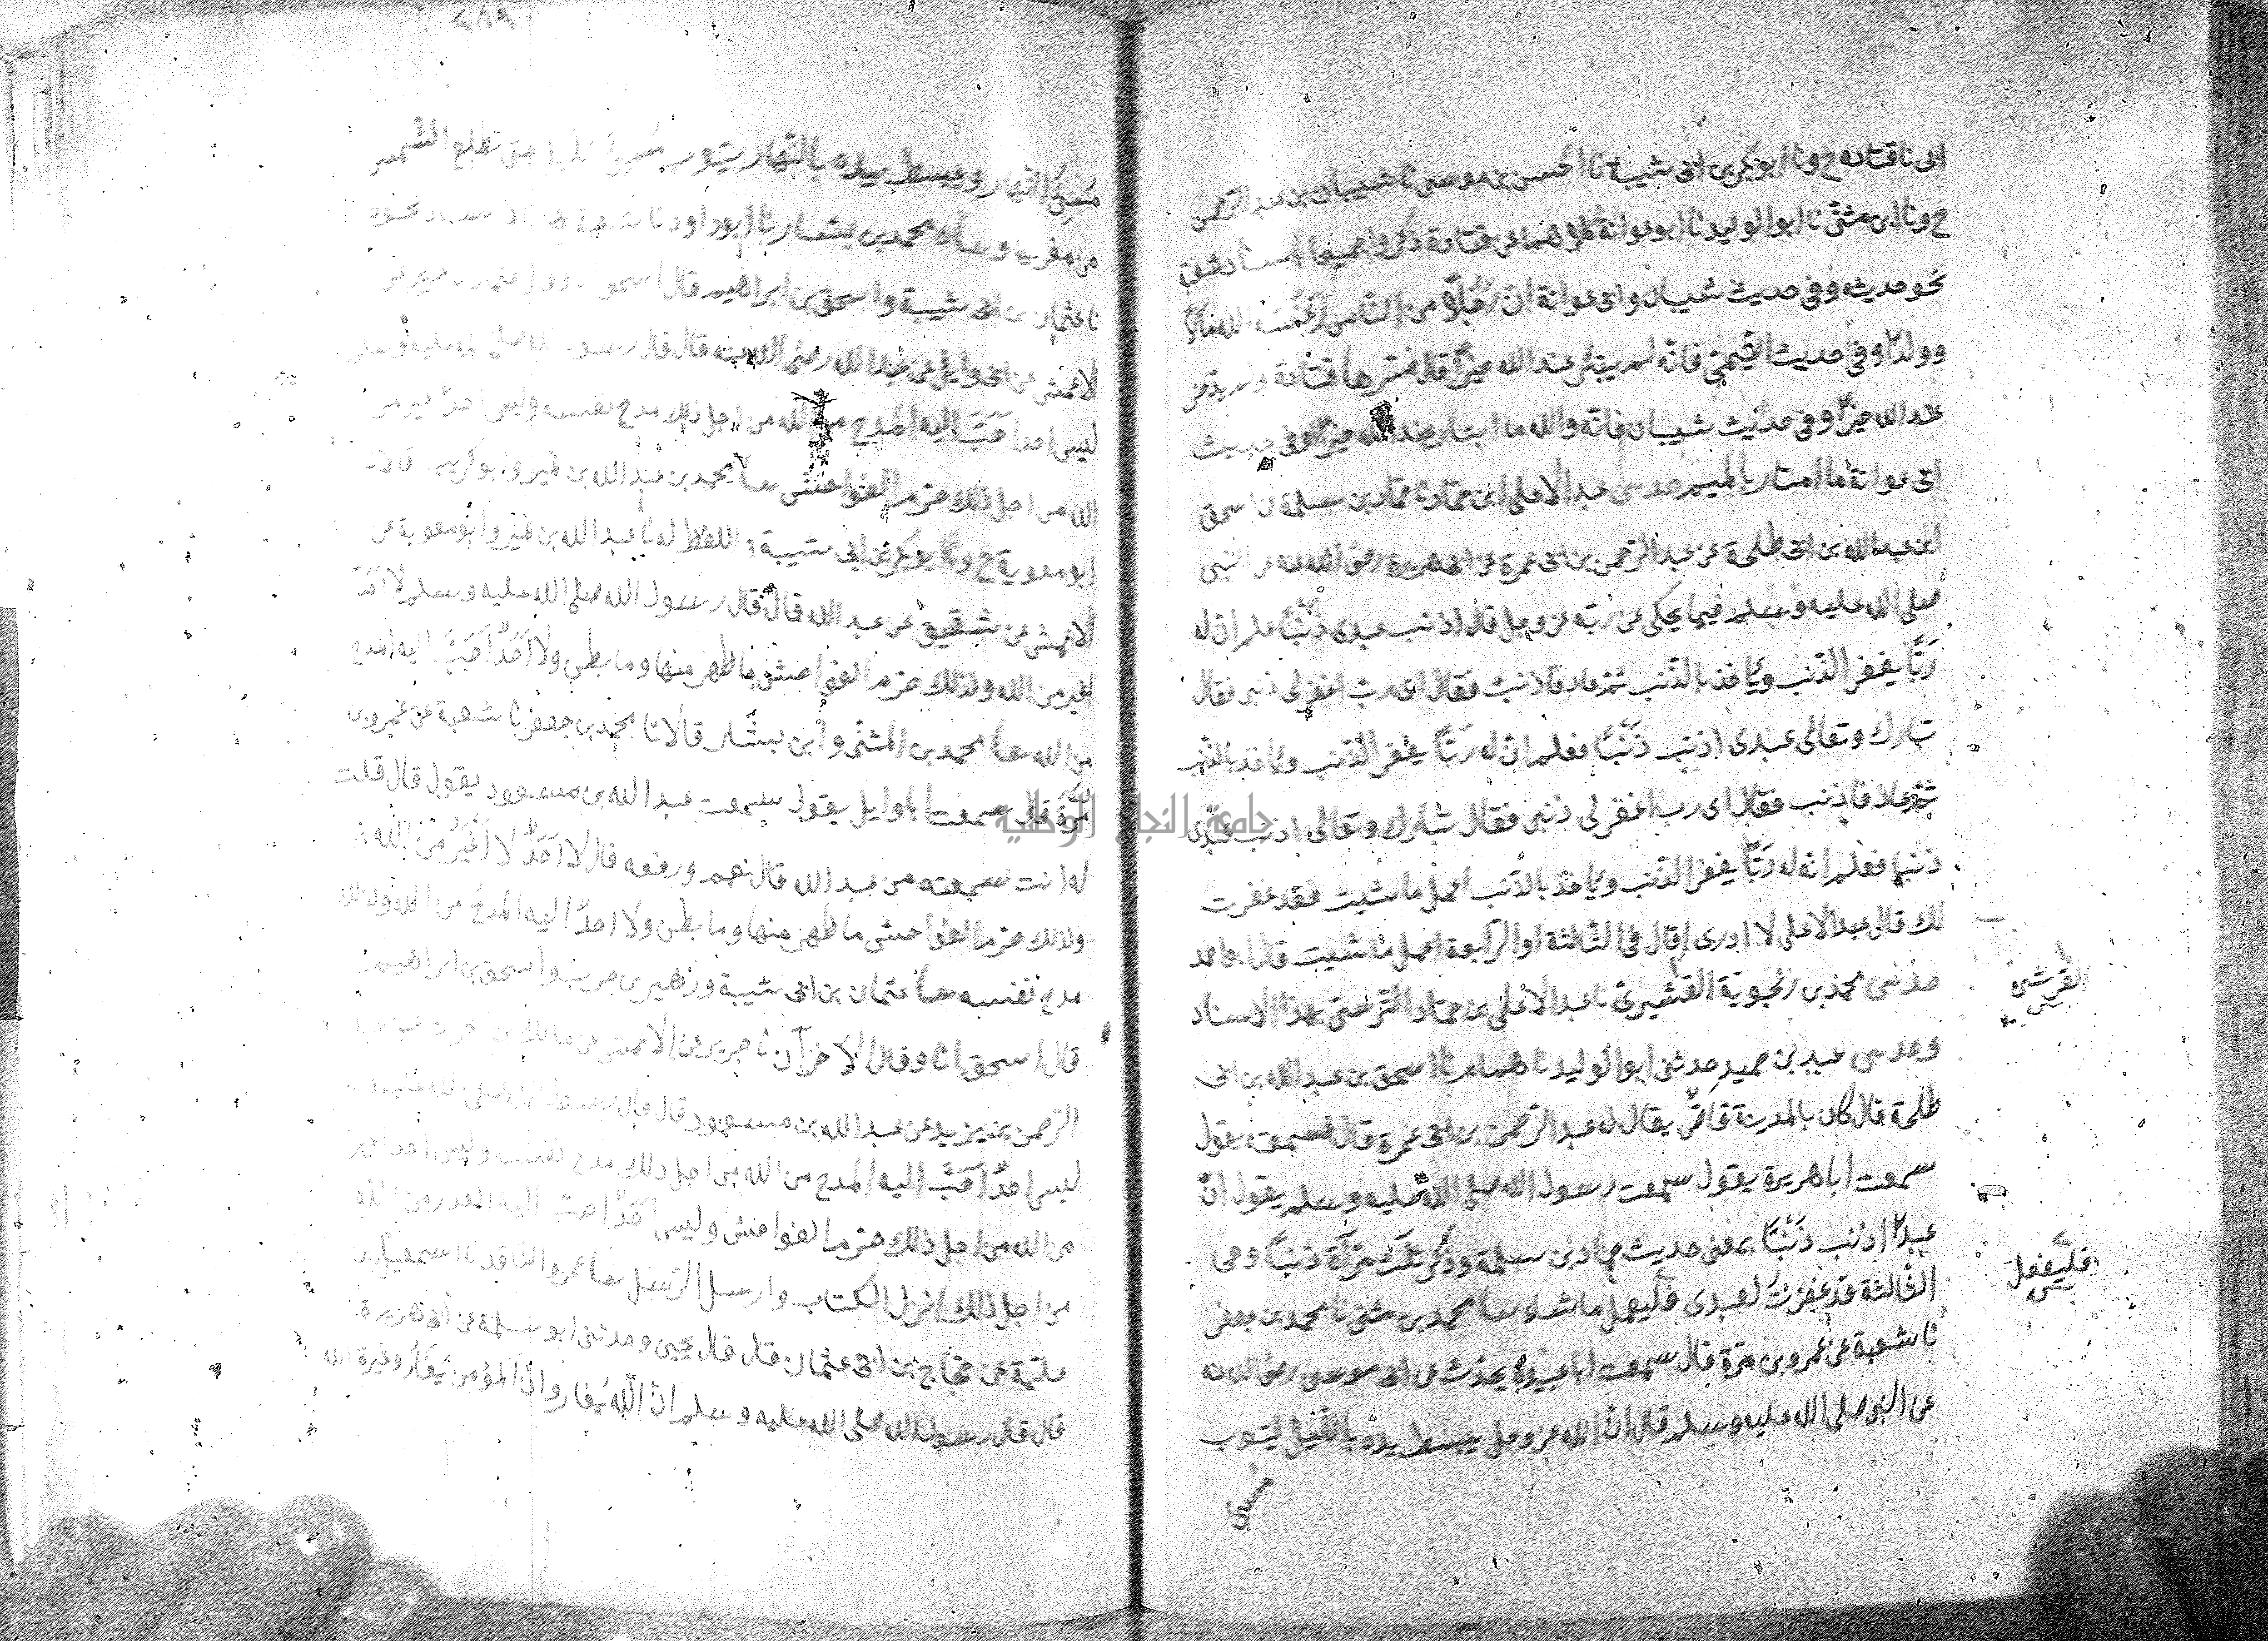 ابى نا قتادة ح ونا ابو بكر بن ابى شيبة نا الحسن بن موسى نا شيبان بن عبد الرحمن
ح ونا ابن مثنى نا ابو الوليد نا ابو عوانة كلاهما عن قتادة ذكروا جميعا باسناد شعبة
نحو حديثه وفى حديث شيبان وابى عوانة ان رجلا من الناس رغسه الله مالا
وولدا وفى حديث التيمى فانه لم يبتئر عند الله خيرا قال فسرها قتادة لم يدخر
عند الله خيرا وفى حديث شيبان فانه والله ما ابتار عند الله خيرا وفى حديث
ابى عوانة ما امتار بالميم حدثنى عبد الاعلى ابن حماد نا حماد بن سلمة عن اسحق
ابن عبد الله بن ابى طلحة عن عبد الرحمن بن ابى عمرة عن ابى هريرة رضى الله عنه عن النبى
صلى الله عليه وسلم فيما يحكى عن ربه عز وجل قال اذنب عبدى ذنبا علم ان له
ربا يغفر الذنب وياخذ بالذنب ثم عاد فاذنب فقال اى رب اغفر لى ذنبى فقال
تبارك وتعالى عبدى اذنب ذنبا فعلم ان له ربا يغفر الذنب وياخذ بالذنب
ثم عاد فاذنب فقال اى رب اغفر لى ذنبى فقال تبارك وتعالى اذنب عبدى
ذنبا فعلم انه له ربا يغفر الذنب وياخذ بالذنب اعمل ما شيت فقد غفرت
لك قال عبد الاعلى لا ادرى اقال فى الثالثة او الرابعة اعمل ما شيت قال ابو احمد
حدثنى محمد بن زنجوية القشيرى نا عبد الاعلى بن حماد النرسى بهذا الاسناد
القرشى
وحدثنى عبد بن حميد حدثنى ابو الوليد نا همام نا اسحق بن عبد الله بن ابى
طلحة قال كان بالمدينة قاص يقال له عبد الرحمن بن ابى عمرة قال فسمعته يقول
سمعت ابا هريرة يقول سمعت رسول الله صلى الله عليه وسلم يقول ان
عبدا اذنب ذنبا بمعنى حديث حماد بن سلمة وذكر ثلث مرات ذنبا وفى
فليفعل
الثالثة قد غفرت لعبدى فليعمل ما شاء حدثنا محمد بن مثنى نا محمد بن جعفر
نا شعبة عن عمرو بن مرة قال سمعت ابا عبيدة يحدث عن ابى موسى رضى الله عنه
عن النبى صلى الله عليه وسلم قال ان الله عز وجل يبسط يده بالليل ليتوب
مسىء
٢٨٩
مسىء النهار ويبسط يده بالنهار ليتوب مسىء الليل حتى تطلع الشمس
من مغربها وحدثناه محمد بن بشار نا ابو داود نا شعبة بهذا الاسناد نحوه
نا عثمان بن ابى شيبة واسحق بن ابراهيم قال اسحق انا وقال عثمان نا جرير عن
الاعمش عن ابى وايل عن عبد الله رضى الله عنه قال قال رسول الله صلى الله عليه وسلم
ليس احد احب اليه المدح من الله من اجل ذلك مدح نفسه وليس احد اغير من
الله من اجل ذلك حرم الفواحش حدثنا محمد بن عبد الله بن نمير وابو كريب قالا نا
ابو معوية ح ونا ابو بكر بن ابى شيبة واللفظ له نا عبد الله بن نمير وابو معوية عن
الاعمش عن شقيق عن عبد الله قال قال رسول الله صلى الله عليه وسلم لا احد
اغير من الله ولذلك حرم الفواحش ما ظهر منها وما بطن ولا احد احب اليه المدح
من الله حدثنا محمد بن المثنى وابن بشار قالا نا محمد بن جعفر نا شعبة عن عمرو بن
مرة قال سمعت ابا وايل يقول سمعت عبد الله بن مسعود يقول قال قلت
له انت سمعته من عبد الله قال نعم ورفعه قال لا احد لا اغير من الله
ولذلك حرم الفواحش ما ظهر منها وما بطن ولا احد اليه المدح من الله ولذلك
مدح نفسه حدثنا عثمان بن ابى شيبة وزهير بن حرب واسحق بن ابراهيم
قال اسحق انا وقال الاخران نا جرير عن الاعمش عن مالك بن الحرث عن عبد
الرحمن بن يزيد عن عبد الله بن مسعود قال قال رسول الله صلى الله عليه وسلم
ليس احد احب اليه المدح من الله من اجل ذلك مدح نفسه وليس احد اغير
من الله من اجل ذلك حرم الفواحش وليس احد احب اليه العذر من الله
من اجل ذلك انزل الكتاب وارسل الرسل حدثنا عمرو الناقد نا اسمعيل بن
علية عن حجاج بن ابى عثمان قال قال يحيى وحدثنى ابو سلمة عن ابى هريرة
قال قال رسول الله صلى الله عليه وسلم ان الله يغار وان المؤمن يغار وغيرة الله
جامعة النجاح الوطنية